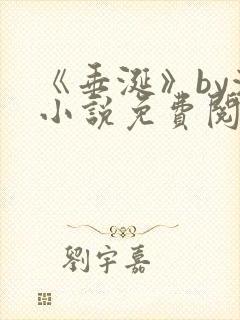 《垂涎》by
小說免費閱
劉宇嘉